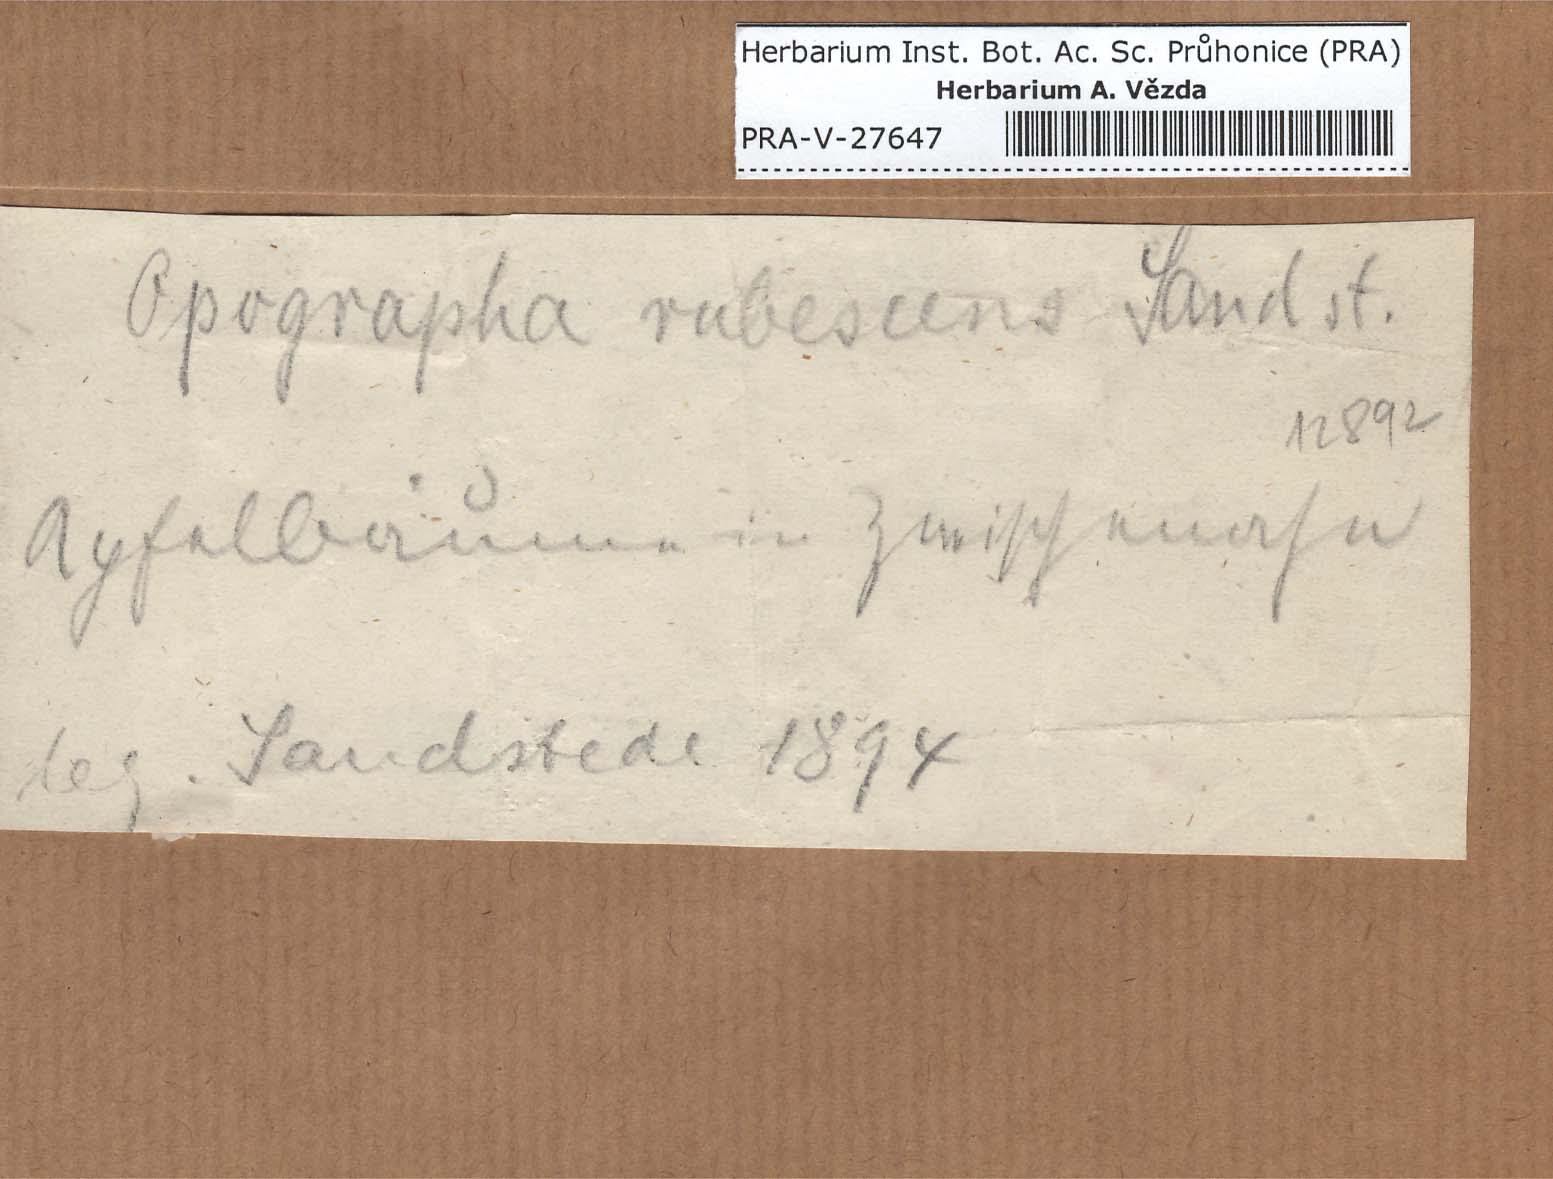 Herbarium Inst. Bot. Ac. Sc. Průhonice (PRA)
Herbarium A. Vězda
PRA-V-27647
Opographa rubescens Sandst.
12892
Apfelbäume in Zwischenahn
leg. Sandstede 1894